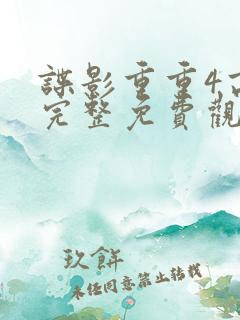 諜影重重4高
完整免費觀
玖餅
未经同意禁止转载